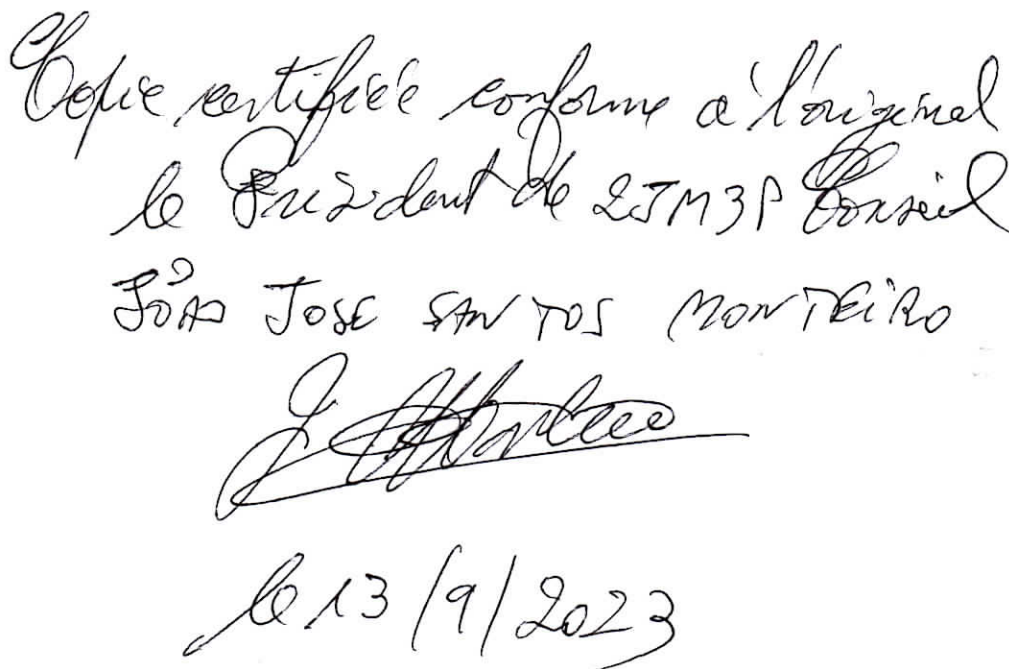 Copie certifiée conforme à l'original
le Président de 2JM3P Conseil
JOÃO JOSE SANTOS MONTEIRO
le 13/9/2023